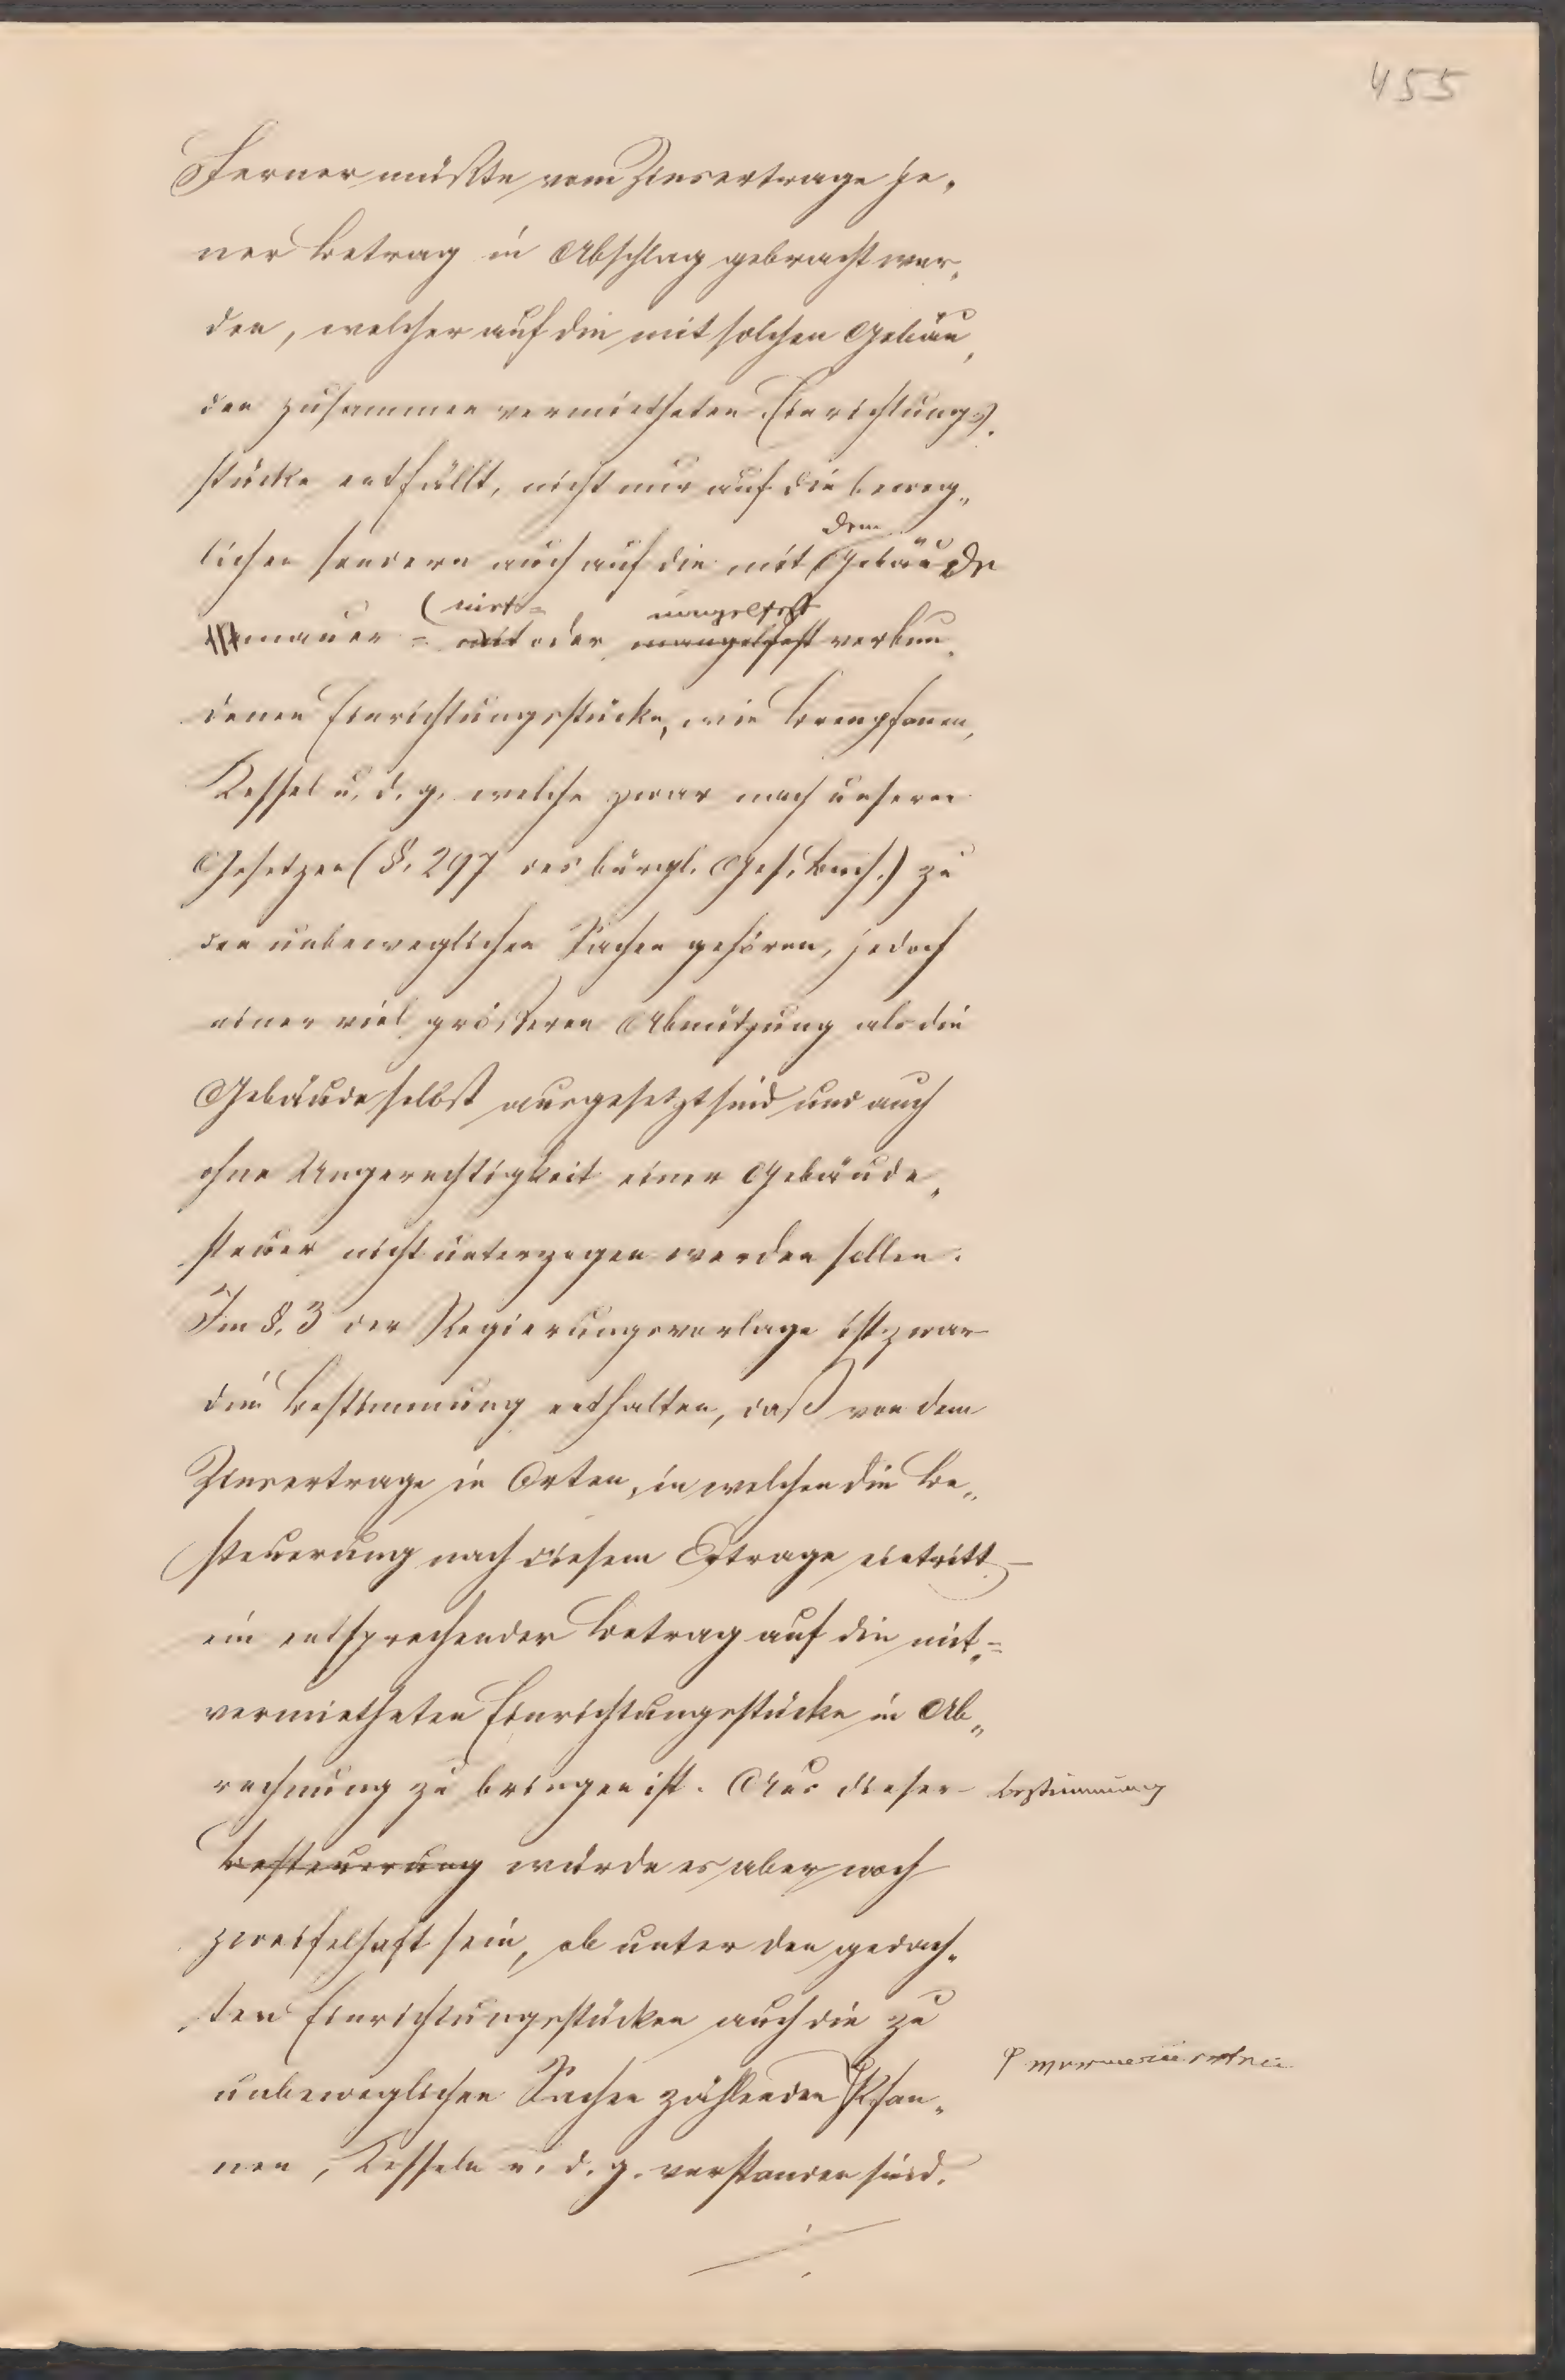 455
Ferner müßte vom Zinsertrage je„
ner Betrag in Abschlag gebracht wer„
den, welcher auf die mit solchen Gebäu„
den zusammen vermietheten Einrichtungs„
stücke entfällt, nicht nur auf die beweg„
lichen sondern auch auf die mit dem Gebäude
mauer= niet= oder nagelfest verbun„
denen Einrichtungsstücke, wie Brenpfannen,
Kessel u. d. g. welche zwar nach unseren
Gesetzen (§. 297 des bürgl. Ges. Buch.) zu
den unbeweglichen Sachen gehören, jedoch
einer viel größeren Abnützung als die
Gebäude selbst ausgesetzt sind und auch
ohne Ungerechtigkeit einer Gebäude„
steuer nicht unterzogen werden sollen.
Im §. 3 der Regierungsvorlage ist zwar
die Bestimmung enthalten, daß von dem
Zinsertrage in Orten, in welchen die Be„
steuerung nach diesem Ertrage eintritt –
ein entsprechender Betrag auf die mit„=
vermietheten Einrichtungsstücke in Ab„
rechnung zu bringen ist. Aus dieser Bestimmung
Besteuerung würde es aber noch
zweifelhaft sein, ob unter den gedach„
ten Einrichtungsstücken auch die zu
unbeweglichen Sachen zählenden Pfan„
nen, Kesseln u. d. g. verstanden sind.